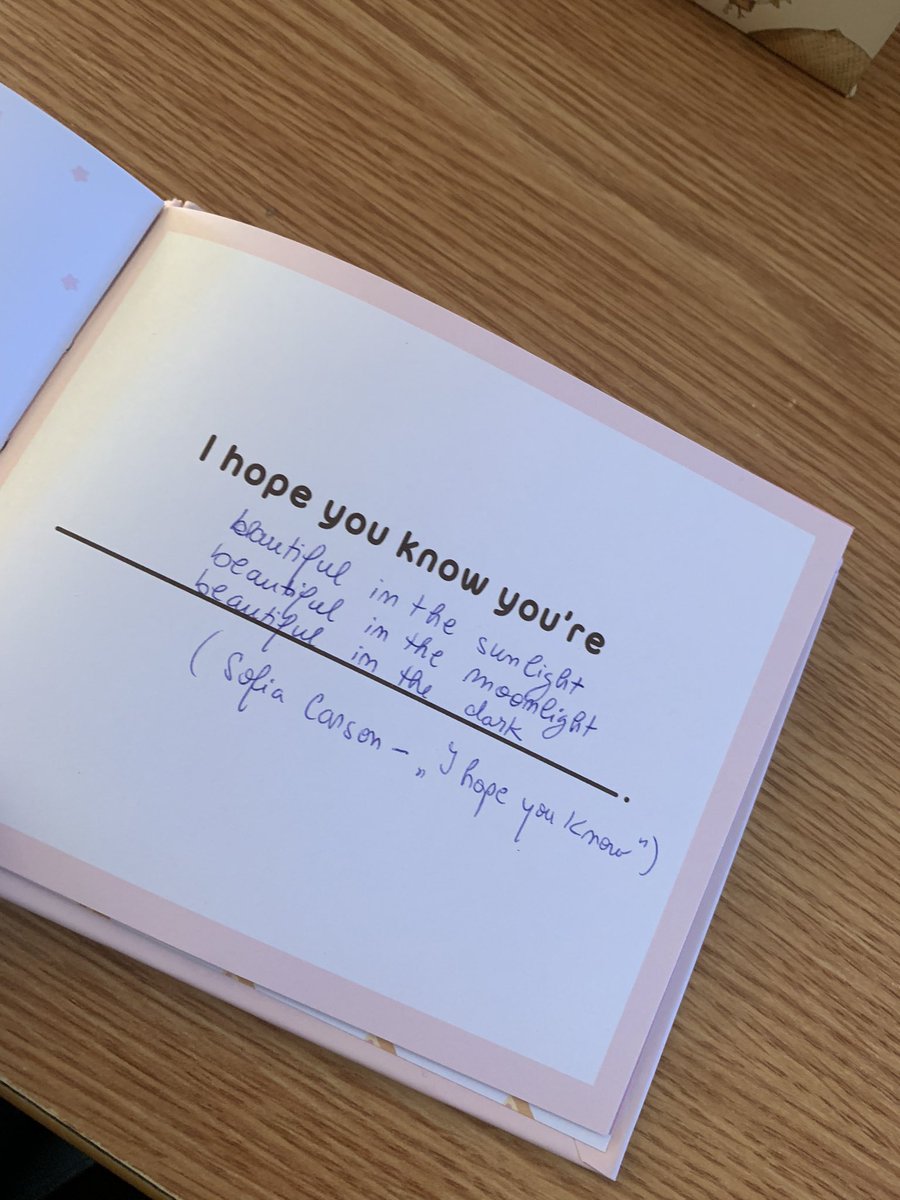 I hope you know you're
beautiful in the sunlight
beautiful in the moonlight
beautiful in the dark
.
( Sofia Carson – „I hope you know")